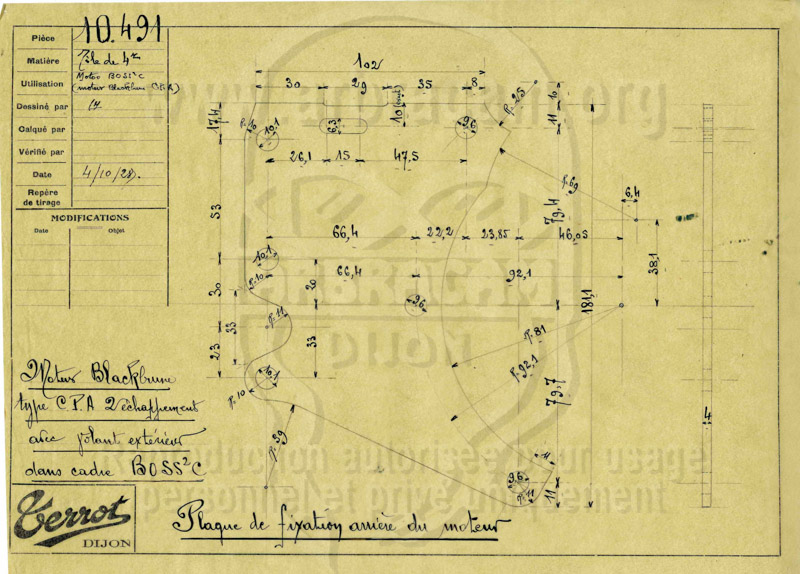 Pièce 10.491
Matière Tôle de 4
Utilisation Moteur BOSS²C
(moteur Blackburne C.P.A)
Dessiné par
Calqué par
Vérifié par
Date 4/10/28.
Repère
de tirage
MODIFICATIONS
Date Objet
102
30 29 35 8
10
17,4
11
P. 25
r. 10
10,1
6,3
10 (fort)
9,6
26,1 15 47,5
P. 69
6,4
53
79,4
66,4 22,2 23,85 46,05
38,1
10,1
P. 10
66,4
92,1
181,1
30
20
9,6
33
P. 11
23
33
P. 81
P. 92,1
79,7
10,1
P. 10
P. 59
4
11
9,6
P. 11
11
Moteur Blackburne
type C.P.A 2 échappement
avec volant extérieur
dans cadre BOSS²C
Terrot
DIJON
Plaque de fixation arrière du moteur
ABRACAM
DIJON
reproduction autorisée pour usage
personnel et privé uniquement